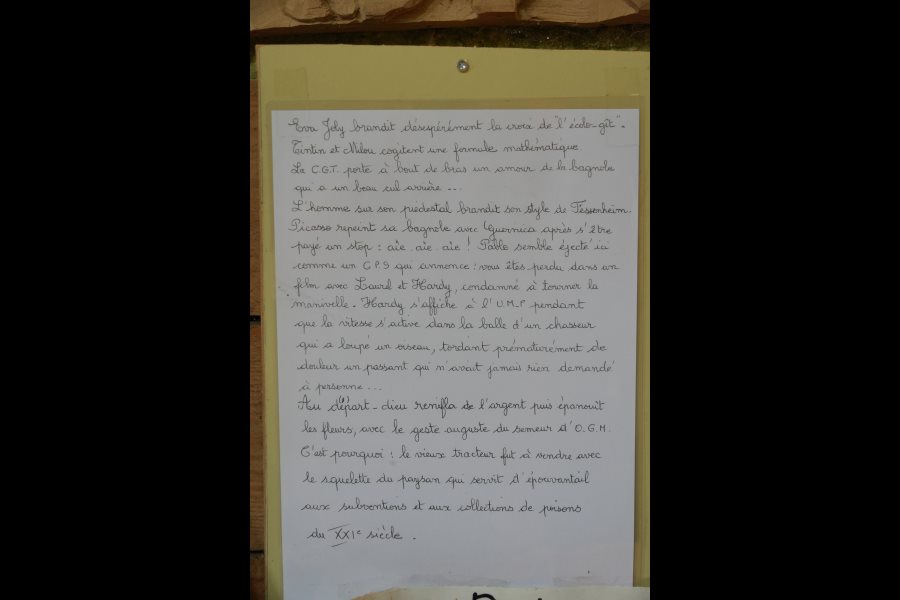 Eva Joly brandit désespérément la croix de "l'écolo-gît".
Tintin et Milou cogitent une formule mathématique
La C.G.T. porte à bout de bras un amour de la bagnole
qui a un beau cul arrière ...
L'homme sur son piedestal brandit son style de Fessenheim.
Picasso repeint sa bagnole avec Guernica après s'être
payé un stop : aïe. aïe. aïe ! Pablo semble éjecté ici
comme un G.P.S qui annonce : vous êtes perdu dans un
film avec Laurel et Hardy, condamné à tourner la
manivelle. Hardy s'affiche à l'U.M.P pendant
que la vitesse s'active dans la balle d'un chasseur
qui a loupé un oiseau, tordant prématurément de
douleur un passant qui n'avait jamais rien demandé
à personne ...
Au départ-dieu renifla de l'argent puis épanouit
les fleurs, avec le geste auguste du semeur d'O.G.M.
C'est pourquoi : le vieux tracteur fut à vendre avec
le squelette du paysan qui servit d'épouvantail
aux subventions et aux collections de poisons
du XXIe siècle.